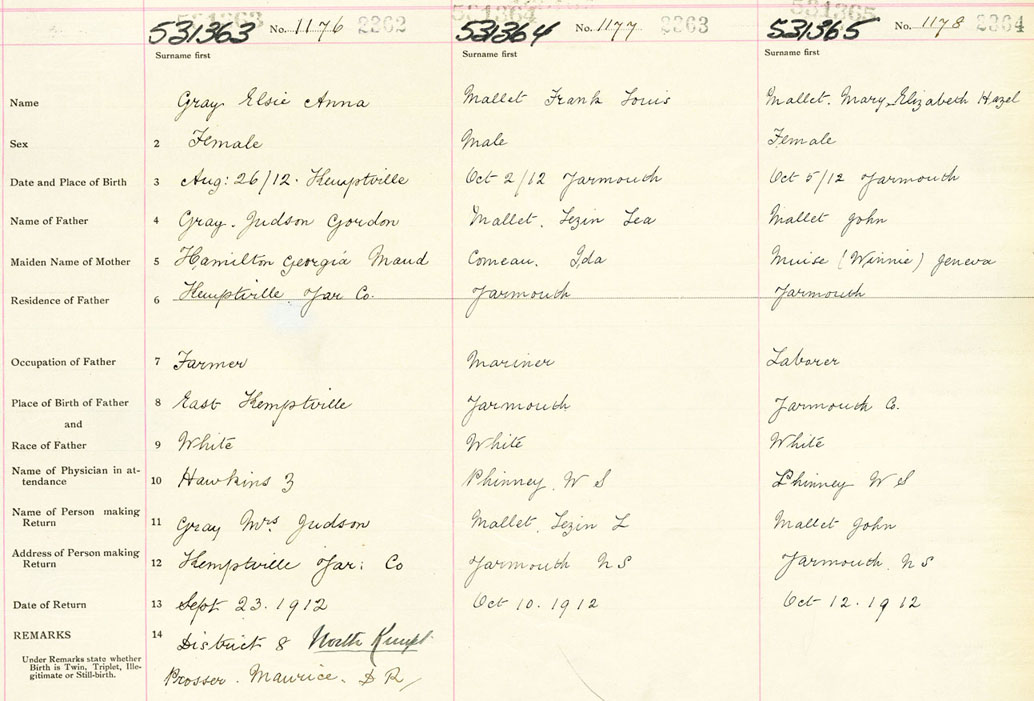 531363 No. 1176 2262 531364 No. 1177 2263 531365 No. 1178 2264
Surname first Surname first Surname first
Name Gray Elsie Anna Mallet Frank Louis Mallet. Mary, Elizabeth Hazel
Sex 2 Female Male Female
Date and Place of Birth 3 Aug: 26/12. Kemptville Oct 2/12 Yarmouth Oct 5/12 Yarmouth
Name of Father 4 Gray. Judson Gordon Mallet. Lezin Lea Mallet John
Maiden Name of Mother 5 Hamilton Georgia Maud Comeau. Ida Muise (Winnie) Geneva
Residence of Father 6 Kemptville Yar Co. Yarmouth Yarmouth
Occupation of Father 7 Farmer Mariner Laborer
Place of Birth of Father 8 East Kemptville Yarmouth Yarmouth Co.
and
Race of Father 9 White White White
Name of Physician in at-
tendance 10 Hawkins Z Phinney W S Phinney W S
Name of Person making
Return 11 Gray Mrs Judson Mallet, Lezin L Mallet John
Address of Person making
Return 12 Kemptville Yar: Co Yarmouth N S Yarmouth, N S
Date of Return 13 Sept 23. 1912 Oct 10. 1912 Oct 12. 1912
REMARKS 14 District 8 North Kempt
Under Remarks state whether
Birth is Twin, Triplet, Ille-
gitimate or Still-birth.
Prosser. Maurice. D R